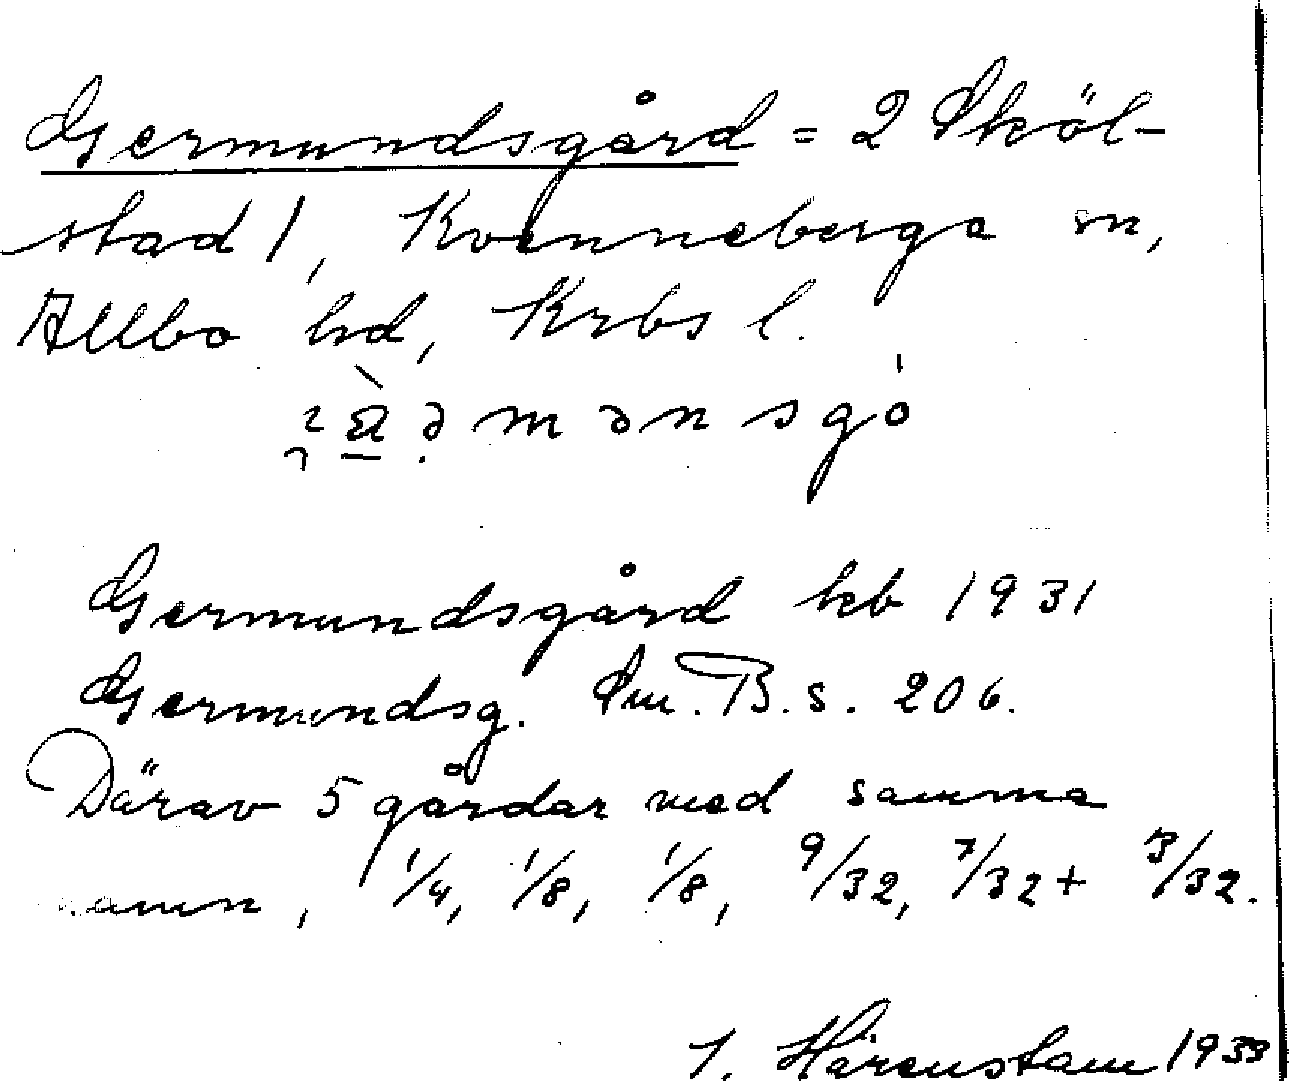 Germundsgård = 2 Sköl-
stad 1, Kvenneberga sn,
Allbo hd, Krbs l.
Germundsgård kb 1931
Germundsg. Sm. B. s. 206.
Därav 5 gårdar med samma
namn, 1/4, 1/8, 1/8, 9/32, 7/32 + 3/32.
Härenstam 1933